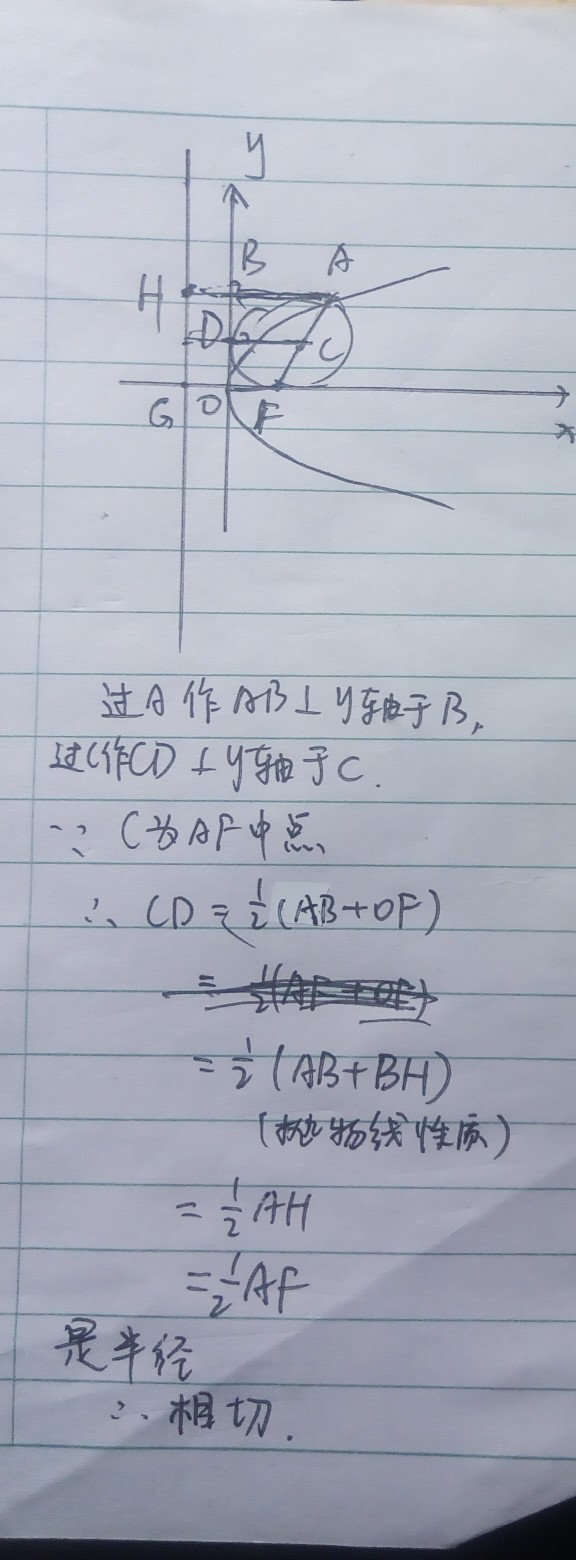 y
B A
H
D C
G O F
x
过A作AB⊥y轴于B,
过C作CD⊥y轴于C.
∵ C为AF中点
∴ CD = 1/2(AB+OF)
= 1/2(AF+OF)
= 1/2(AB+BH)
(抛物线性质)
= 1/2AH
= 1/2AF
是半径
∴ 相切.